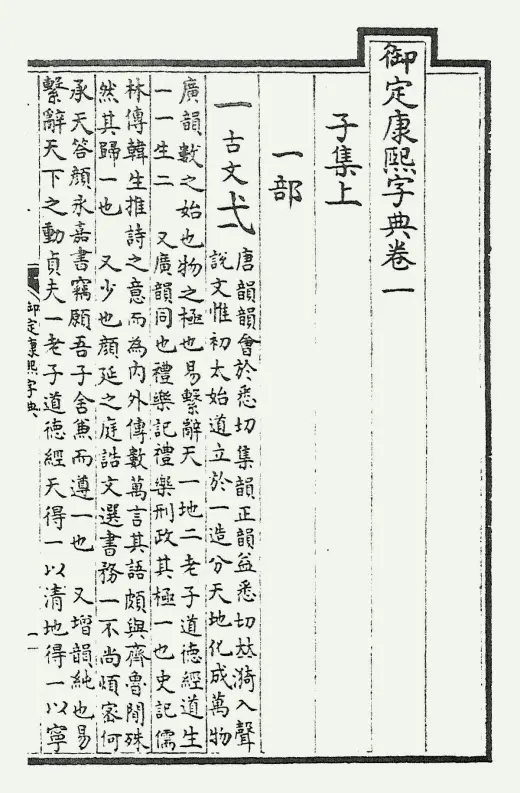 御定康熙字典卷一
子集上
一部
一 古文弌
唐韻韻會於悉切集韻正韻益悉切𠀤漪入聲
說文惟初太始道立於一造分天地化成萬物
廣韻數之始也物之極也易繫辭天一地二老子道德經道生
一一生二 又廣韻同也禮樂記禮樂刑政其極一也史記儒
林傳韓生推詩之意而為內外傳數萬言其語頗與齊魯閒殊
然其歸一也 又少也顏延之庭誥文選書務一不尚煩密何
承天答顏永嘉書竊願吾子舍兼而遵一也 又增韻純也易
繫辭天下之動貞夫一老子道德經天得一以清地得一以寧
御定康熙字典